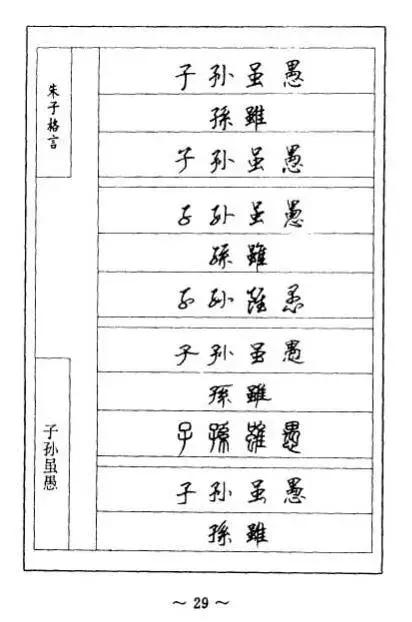 朱子格言
子孙虽愚
子孙虽愚
孫雖
子孙虽愚
子孙虽愚
孫雖
子孙雖愚
子孙虽愚
孫雖
子孫雖愚
子孙虽愚
孫雖
～ 29 ～